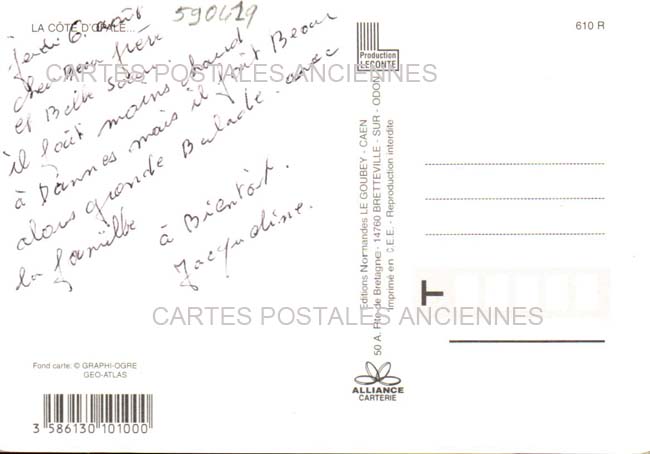 LA CÔTE D'OPALE...
590619
610 R
Jeudi 6 août
cher Beau frère
et Belle Soeur
il fait moins chaud
à Dannes mais il fait Beau
alors grande Balade avec
la famille
à Bientôt.
Jacqueline.
CARTES POSTALES ANCIENNES
Production
LECONTE
Editions Normandes LE GOUBEY - CAEN
50 A, Rte de Bretagne - 14760 BRETTEVILLE - SUR - ODON
Imprimé en C.E.E. - Reproduction interdite
T
CARTES POSTALES ANCIENNES
Fond carte: © GRAPHI-OGRE
GEO-ATLAS
ALLIANCE
CARTERIE
3 586130 101000